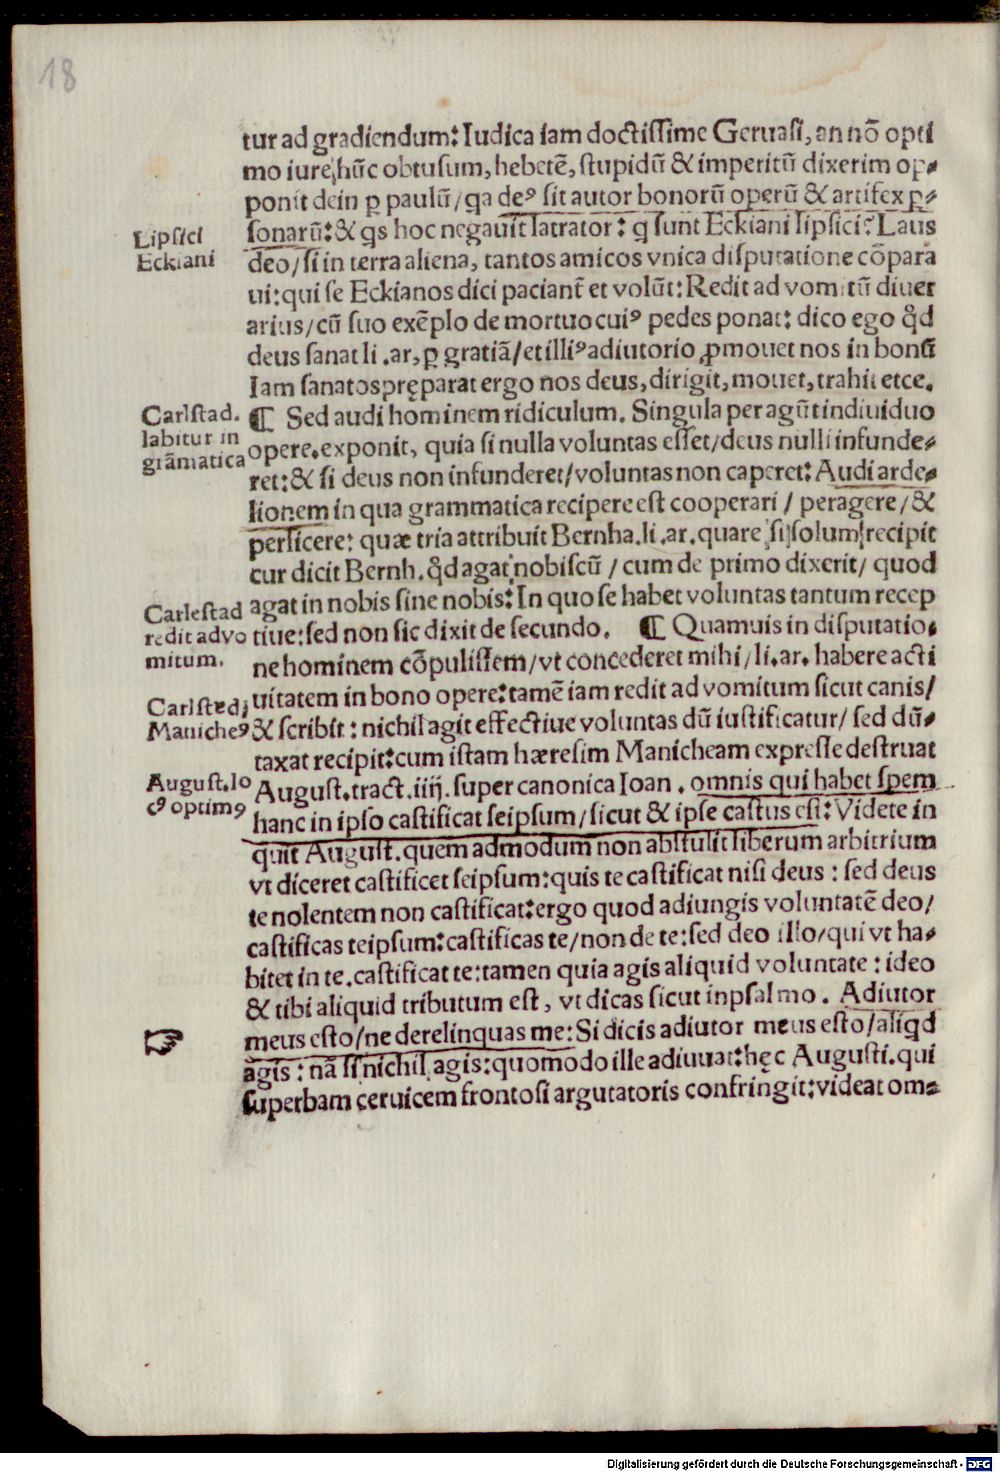 18
tur ad gradiendum: Iudica iam doctissime Geruasi, an nō opti
mo iure hūc obtusum, hebetē, stupidū & imperitū dixerim op⸗
ponit dein ꝑ paulū/ qa deꝰ sit autor bonorū operū & artifex ꝑ⸗
sonarū: & qs hoc negauit latrator: q sunt Eckiani lipsici? Laus
deo/ si in terra aliena, tantos amicos vnica disputatione cōpara
ui: qui se Eckianos dici paciant̄ et volūt: Redit ad vomitū diuer
arius/ cū suo exēplo de mortuo cuiꝰ pedes ponat: dico ego qđ
deus sanat li .ar, ꝑ gratiā/ et illiꝰ adiutorio ꝓmouet nos in bonū
Iam sanatos pręparat ergo nos deus, dirigit, mouet, trahit etce.
¶ Sed audi hominem ridiculum. Singula per agūt indiuiduo
opere. exponit, quia si nulla voluntas esset/ deus nulli infunde⸗
ret: & si deus non infunderet/ voluntas non caperet: Audi arde⸗
lionem in qua grammatica recipere est cooperari / peragere/ &
perficere: quæ tria attribuit Bernha. li .ar. quare si solum recipit
cur dicit Bernh. qđ agat nobiscū / cum de primo dixerit/ quod
agat in nobis sine nobis: In quo se habet voluntas tantum recep
tiue: sed non sic dixit de secundo. ¶ Quamuis in disputatio⸗
ne hominem cōpulissem/ vt concederet mihi/ li. ar. habere acti
uitatem in bono opere: tamē iam redit ad vomitum sicut canis/
& scribit: nichil agit effectiue voluntas dū iustificatur/ sed dū⸗
taxat recipit: cum istam hæresim Manicheam expresse destruat
August. tract. iiij. super canonica Ioan . omnis qui habet spem
hanc in ipso castificat seipsum/ sicut & ipse castus est: Videte in
quit August. quem admodum non abstulit liberum arbitrium
vt diceret castificet seipsum: quis te castificat nisi deus : sed deus
te nolentem non castificat: ergo quod adiungis voluntatē deo/
castificas teipsum: castificas te/ non de te: sed deo illo/ qui vt ha⸗
bitet in te. castificat te: tamen quia agis aliquid voluntate : ideo
& tibi aliquid tributum est, vt dicas sicut in psalmo . Adiutor
meus esto/ ne derelinquas me: Si dicis adiutor meus esto/ aliqd
agis : nā si nichil agis: quomodo ille adiuuat: hęc Augusti. qui
superbam ceruicem frontosi argutatoris confringit: videat om⸗
Lipsici
Eckiani
Carlstad.
labitur in
grāmatica
Carlestad
redit ad vo
mitum.
Carlstedi
Manicheꝰ
August. lo
cꝰ optimꝰ
Digitalisierung gefördert durch die Deutsche Forschungsgemeinschaft - DFG